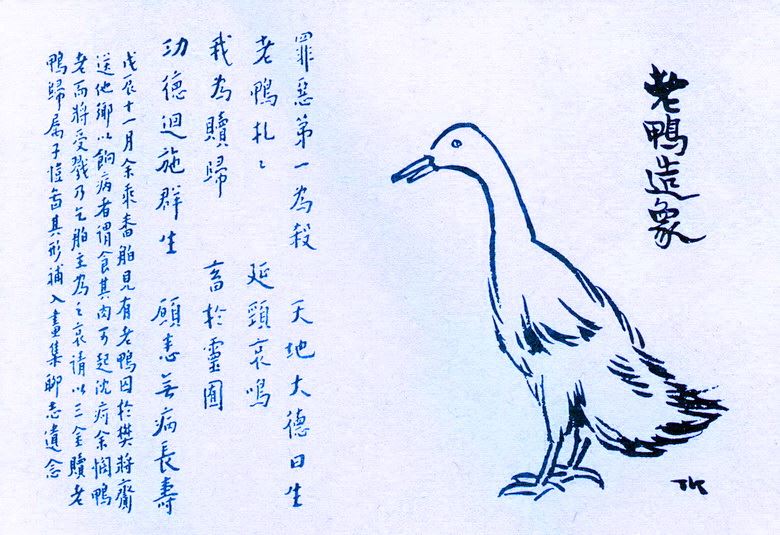 老鴨造象
罪惡第一為殺　天地大德曰生
老鴨札々　延頸哀鳴
我為贖歸　畜於靈囿
功德迴施群生　願悉无病長壽
戊辰十一月余乘番舶見有老鴨囚於樊將齎
送他鄉以餉病者謂食其肉可起沈痾余憫鴨
老而將受戮乃乞舶主為之哀請以三金贖老
鴨歸屬子愷畵其形補入畫集聊志遺念
TK